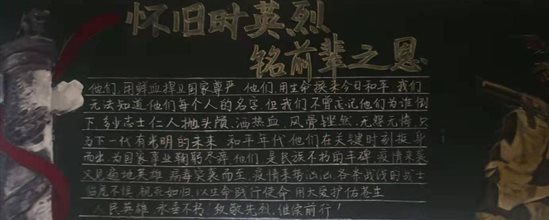 怀旧时英烈
铭前辈之恩
他们用鲜血捍卫国家尊严 他们用生命换来今日和平 我们
无法知道他们每个人的名字 但我们不曾忘记他们为谁倒
下 多少志士仁人抛头颅、洒热血、风骨铿然、无怨无悔 只
为下一代有光明的未来 和平年代 他们在关键时刻挺身
而出 为国家事业鞠躬尽瘁 他们是民族不朽的丰碑 疫情来袭
又见遍地英雄 病毒突袭而至 疫情来势汹汹 各条战线的战士
临危不惧、视死如归 以生命践行使命 用大爱护佑苍生
人民英雄 永垂不朽 致敬先烈，继续前行！